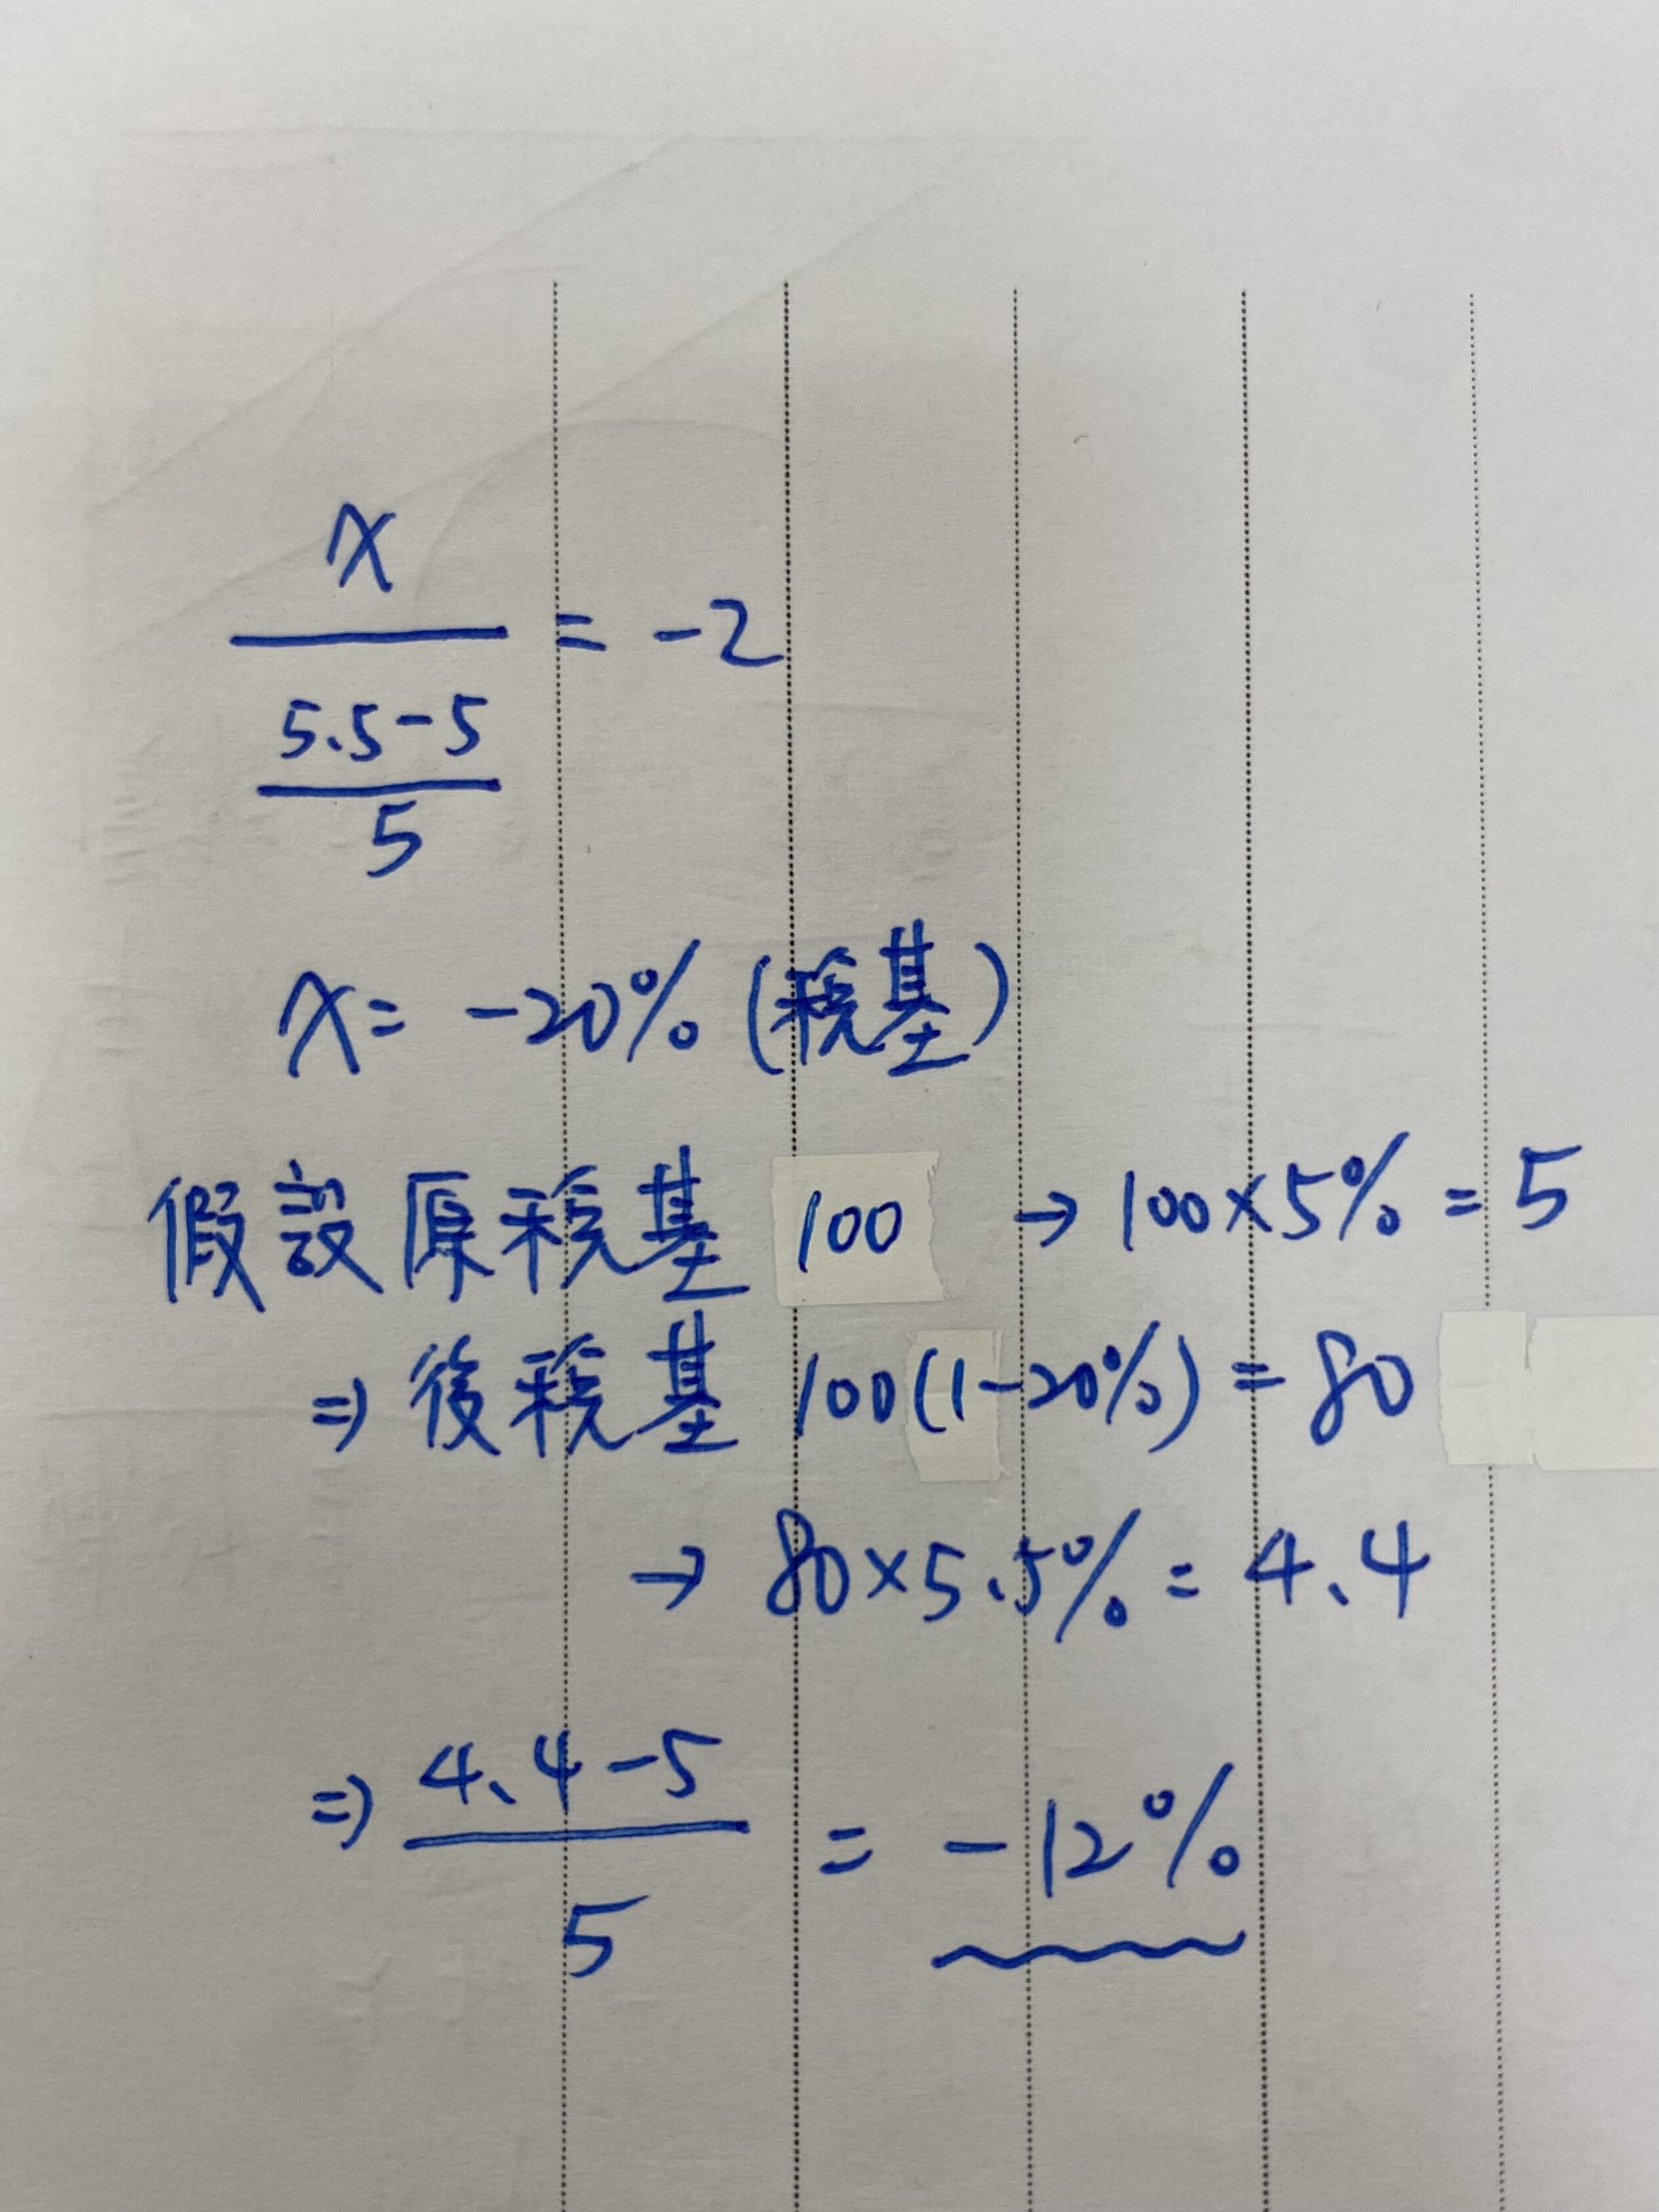 x
= -2
5.5-5
5
x= -20% (稅基)
假設原稅基 100 → 100×5% = 5
⇒ 後稅基 100(1-20%) = 80
→ 80×5.5% = 4.4
⇒ 4.4-5
= -12%
5